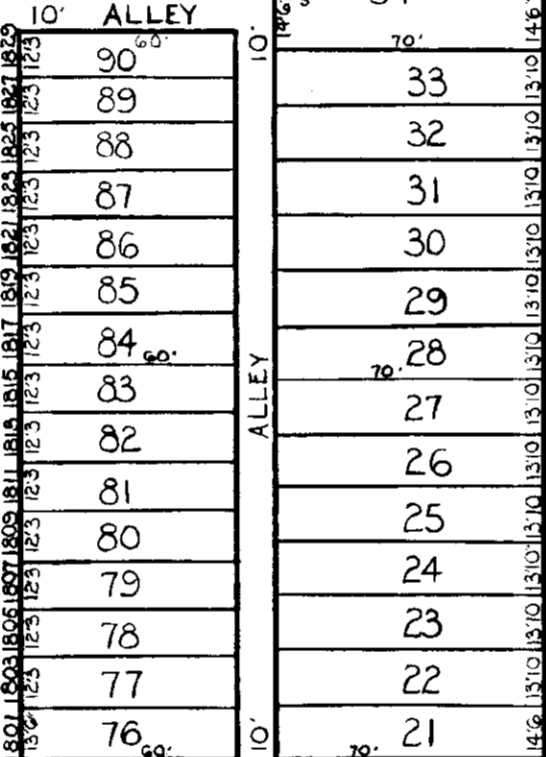 10' ALLEY
1829 12'3 90 60'
1827 12'3 89
1825 12'3 88
1823 12'3 87
1821 12'3 86
1819 12'3 85
1817 12'3 84 60'
1815 12'3 83
1813 12'3 82
1811 12'3 81
1809 12'3 80
1807 12'3 79
1805 12'3 78
1803 12'3 77
1801 13'6 76 60'
10'
ALLEY
10'
14'6
70'
33 13'10
32 13'10
31 13'10
30 13'10
29 13'10
28 13'10
70'
27 13'10
26 13'10
25 13'10
24 13'10
23 13'10
22 13'10
21 14'6
70'